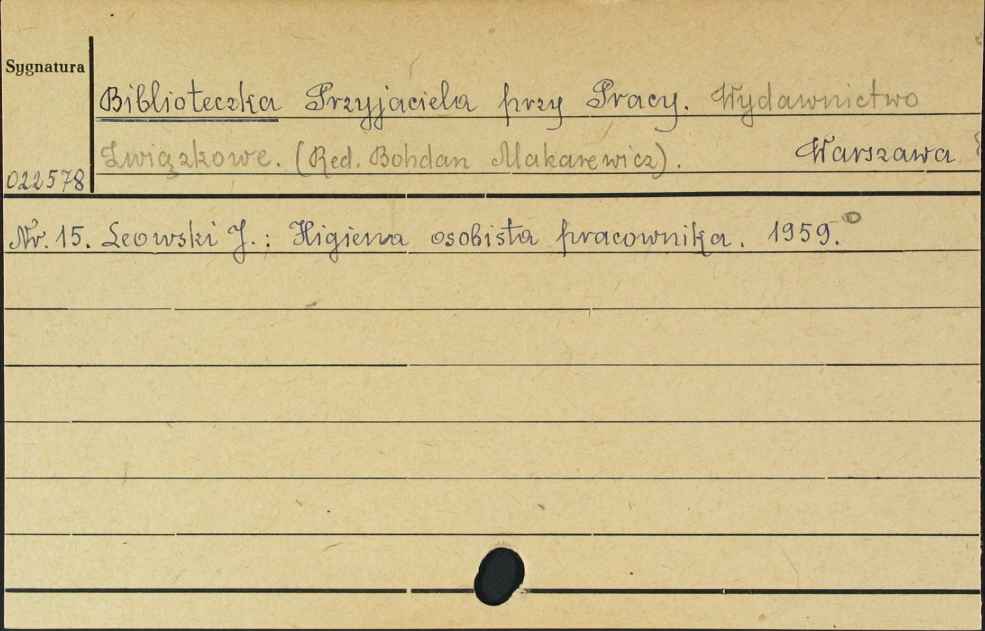 Sygnatura
Biblioteczka Przyjaciela przy Pracy. Wydawnictwo
Związkowe. (Red. Bohdan Makarewicz). Warszawa
022578
Nr. 15. Leowski J.: Higiena osobista pracownika. 1959.